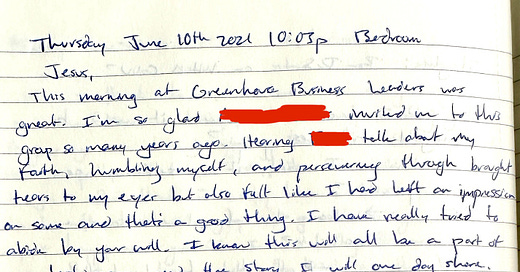 Thursday June 10th 2021 10:03p Bedroom
Jesus,
This morning at Greenhouse Business Leaders was
great. I'm so glad invited me to this
group so many years ago. Hearing talk about my
faith, humbling myself, and persevering through brought
tears to my eyes but also felt like I had left an impression
on some and that's a good thing. I have really tried to
abide by your will. I know this will all be a part of
and the story I will one day share.